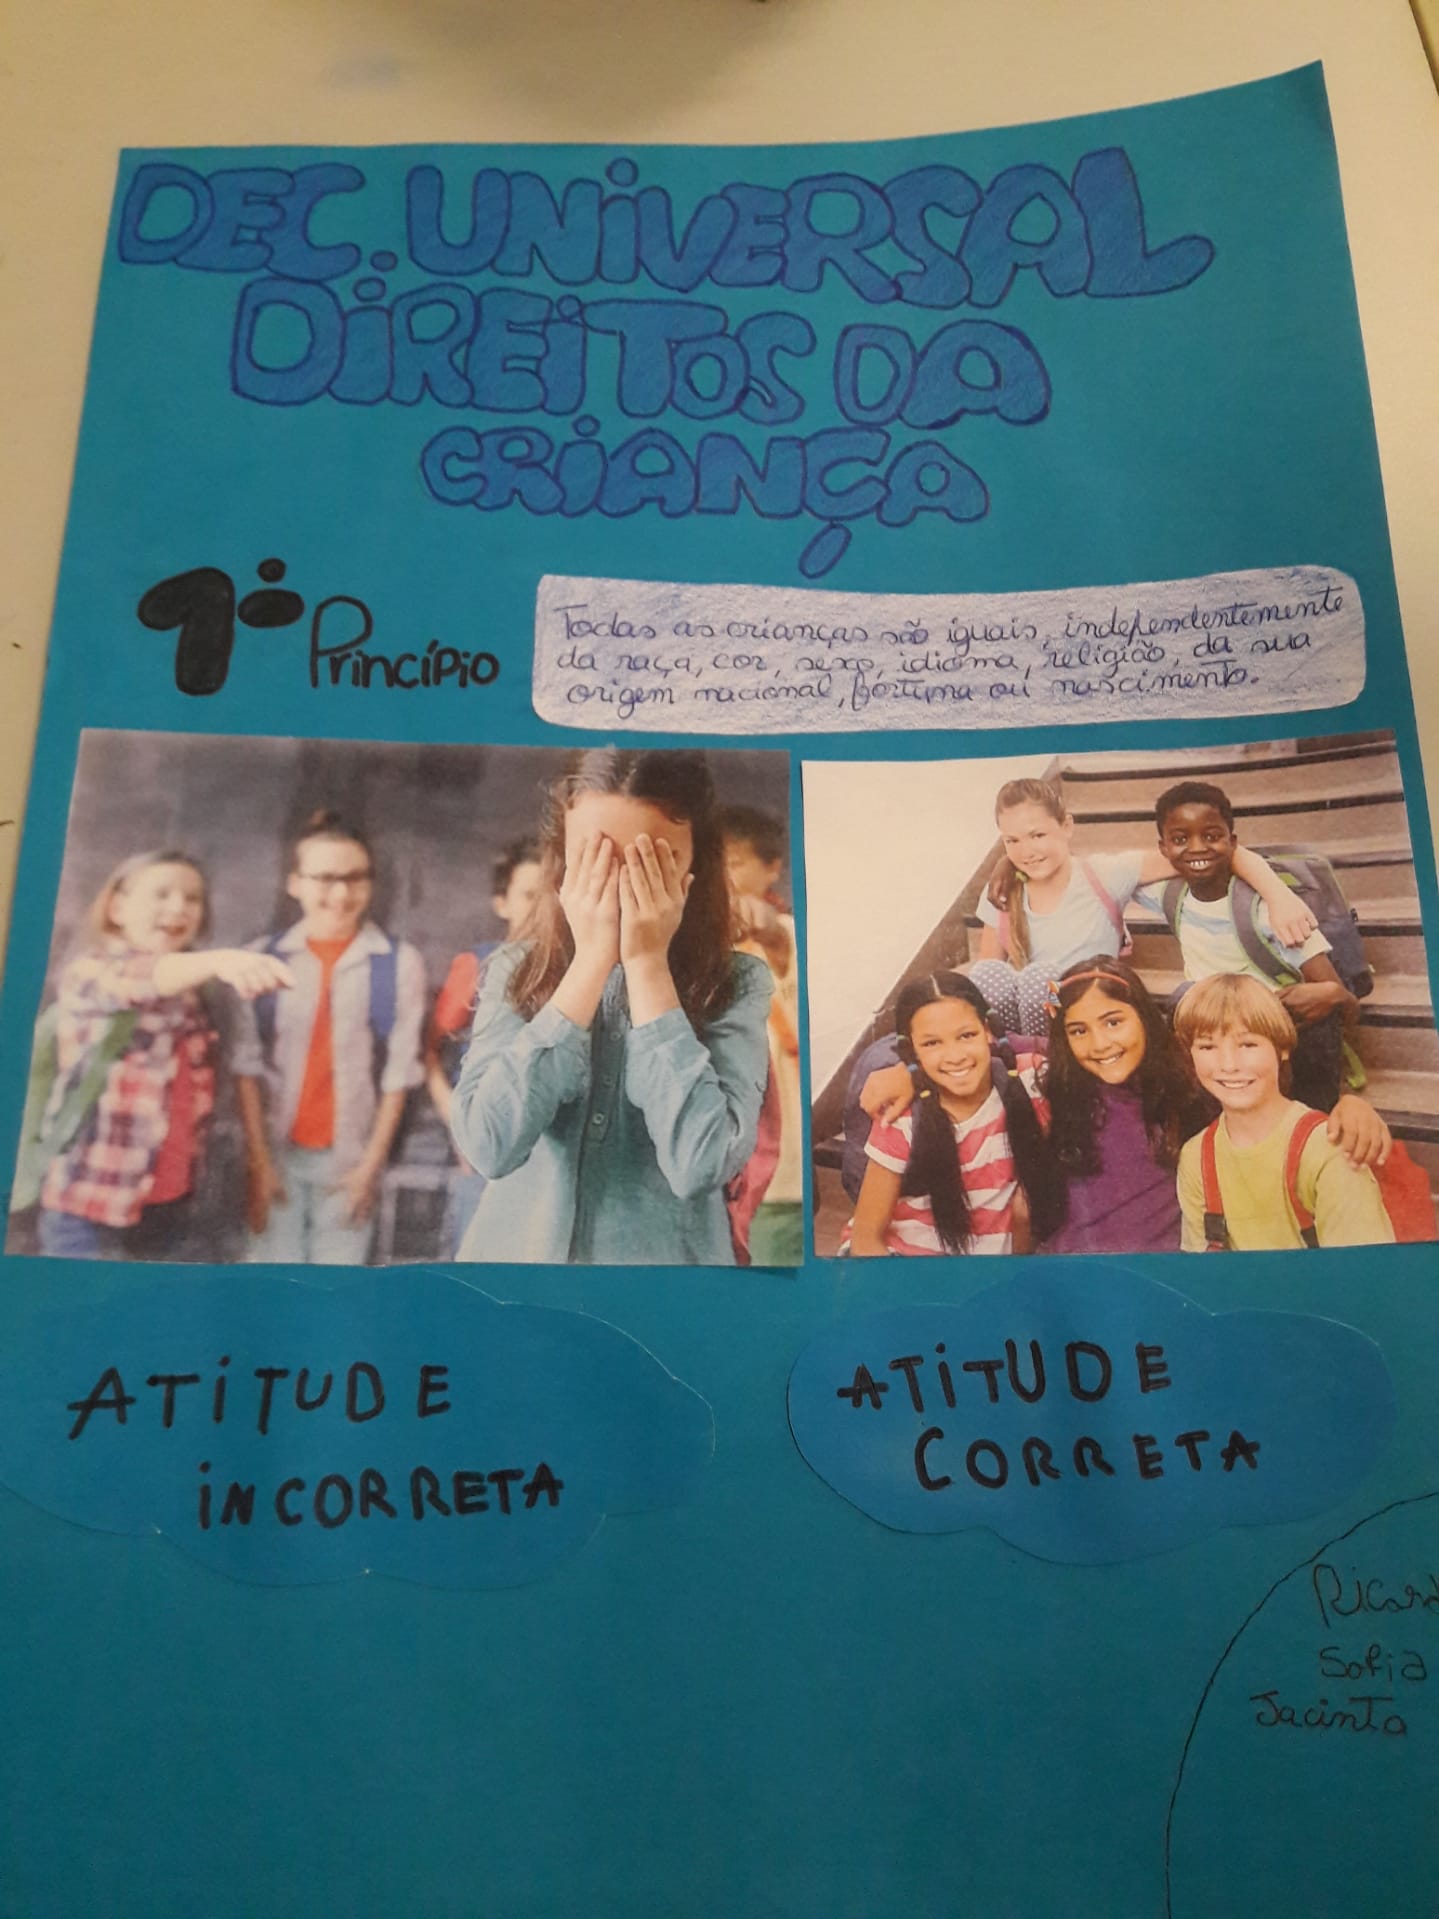 DEC. UNIVERSAL
DIREITOS DA
CRIANÇA
1º Princípio
Todas as crianças são iguais, independentemente
da raça, cor, sexo, idioma, religião, da sua
origem nacional, fortuna ou nascimento.
ATITUDE
INCORRETA
ATITUDE
CORRETA
Sofia
Jacinta